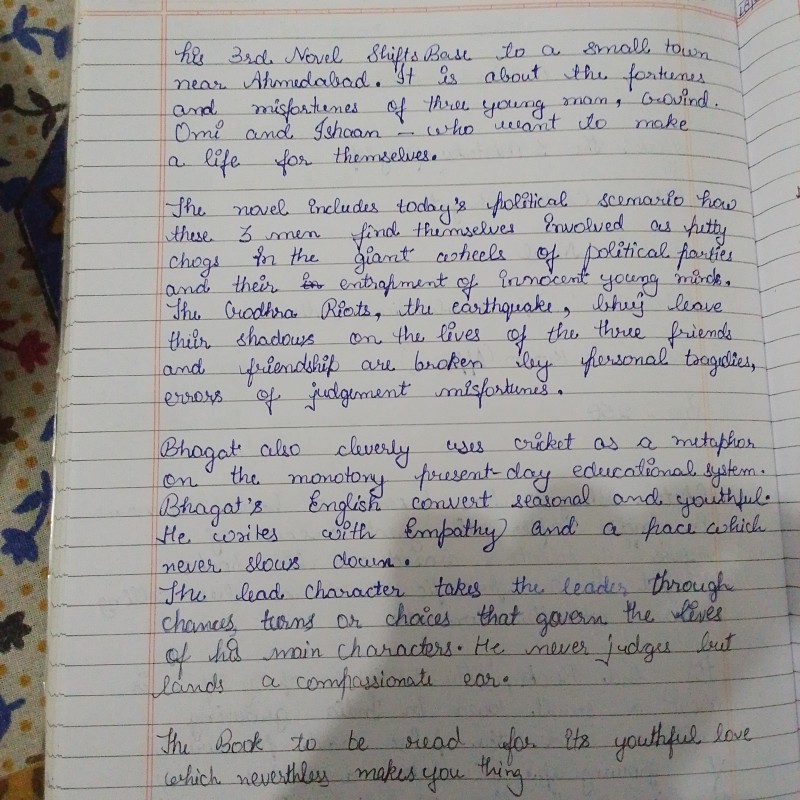 his 3rd Novel Shifts Base to a small town
near Ahmedabad. It is about the fortunes
and misfortunes of three young man, Govind.
Omi and Ishaan – who want to make
a life for themselves.
The novel includes today's political scenario how
these 3 men find themselves involved as putty
chogs in the giant wheels of political parties
and their in entrapment of innocent young minds.
The Godhra Riots, the earthquake, they leave
their shadows on the lives of the three friends
and friendship are broken by personal tragidies,
errors of judgement misfortunes.
Bhagat also cleverly uses cricket as a metaphor
on the monotony present-day educational system.
Bhagat's English convert seasonal and youthful.
He writes with Empathy and a pace which
never slows down.
The lead character takes the leader through
chances, turns or choices that govern the lives
of his main characters. He never judges but
lands a compassionate ear.
The Book to be read for its youthful love
which neverthless makes you thing